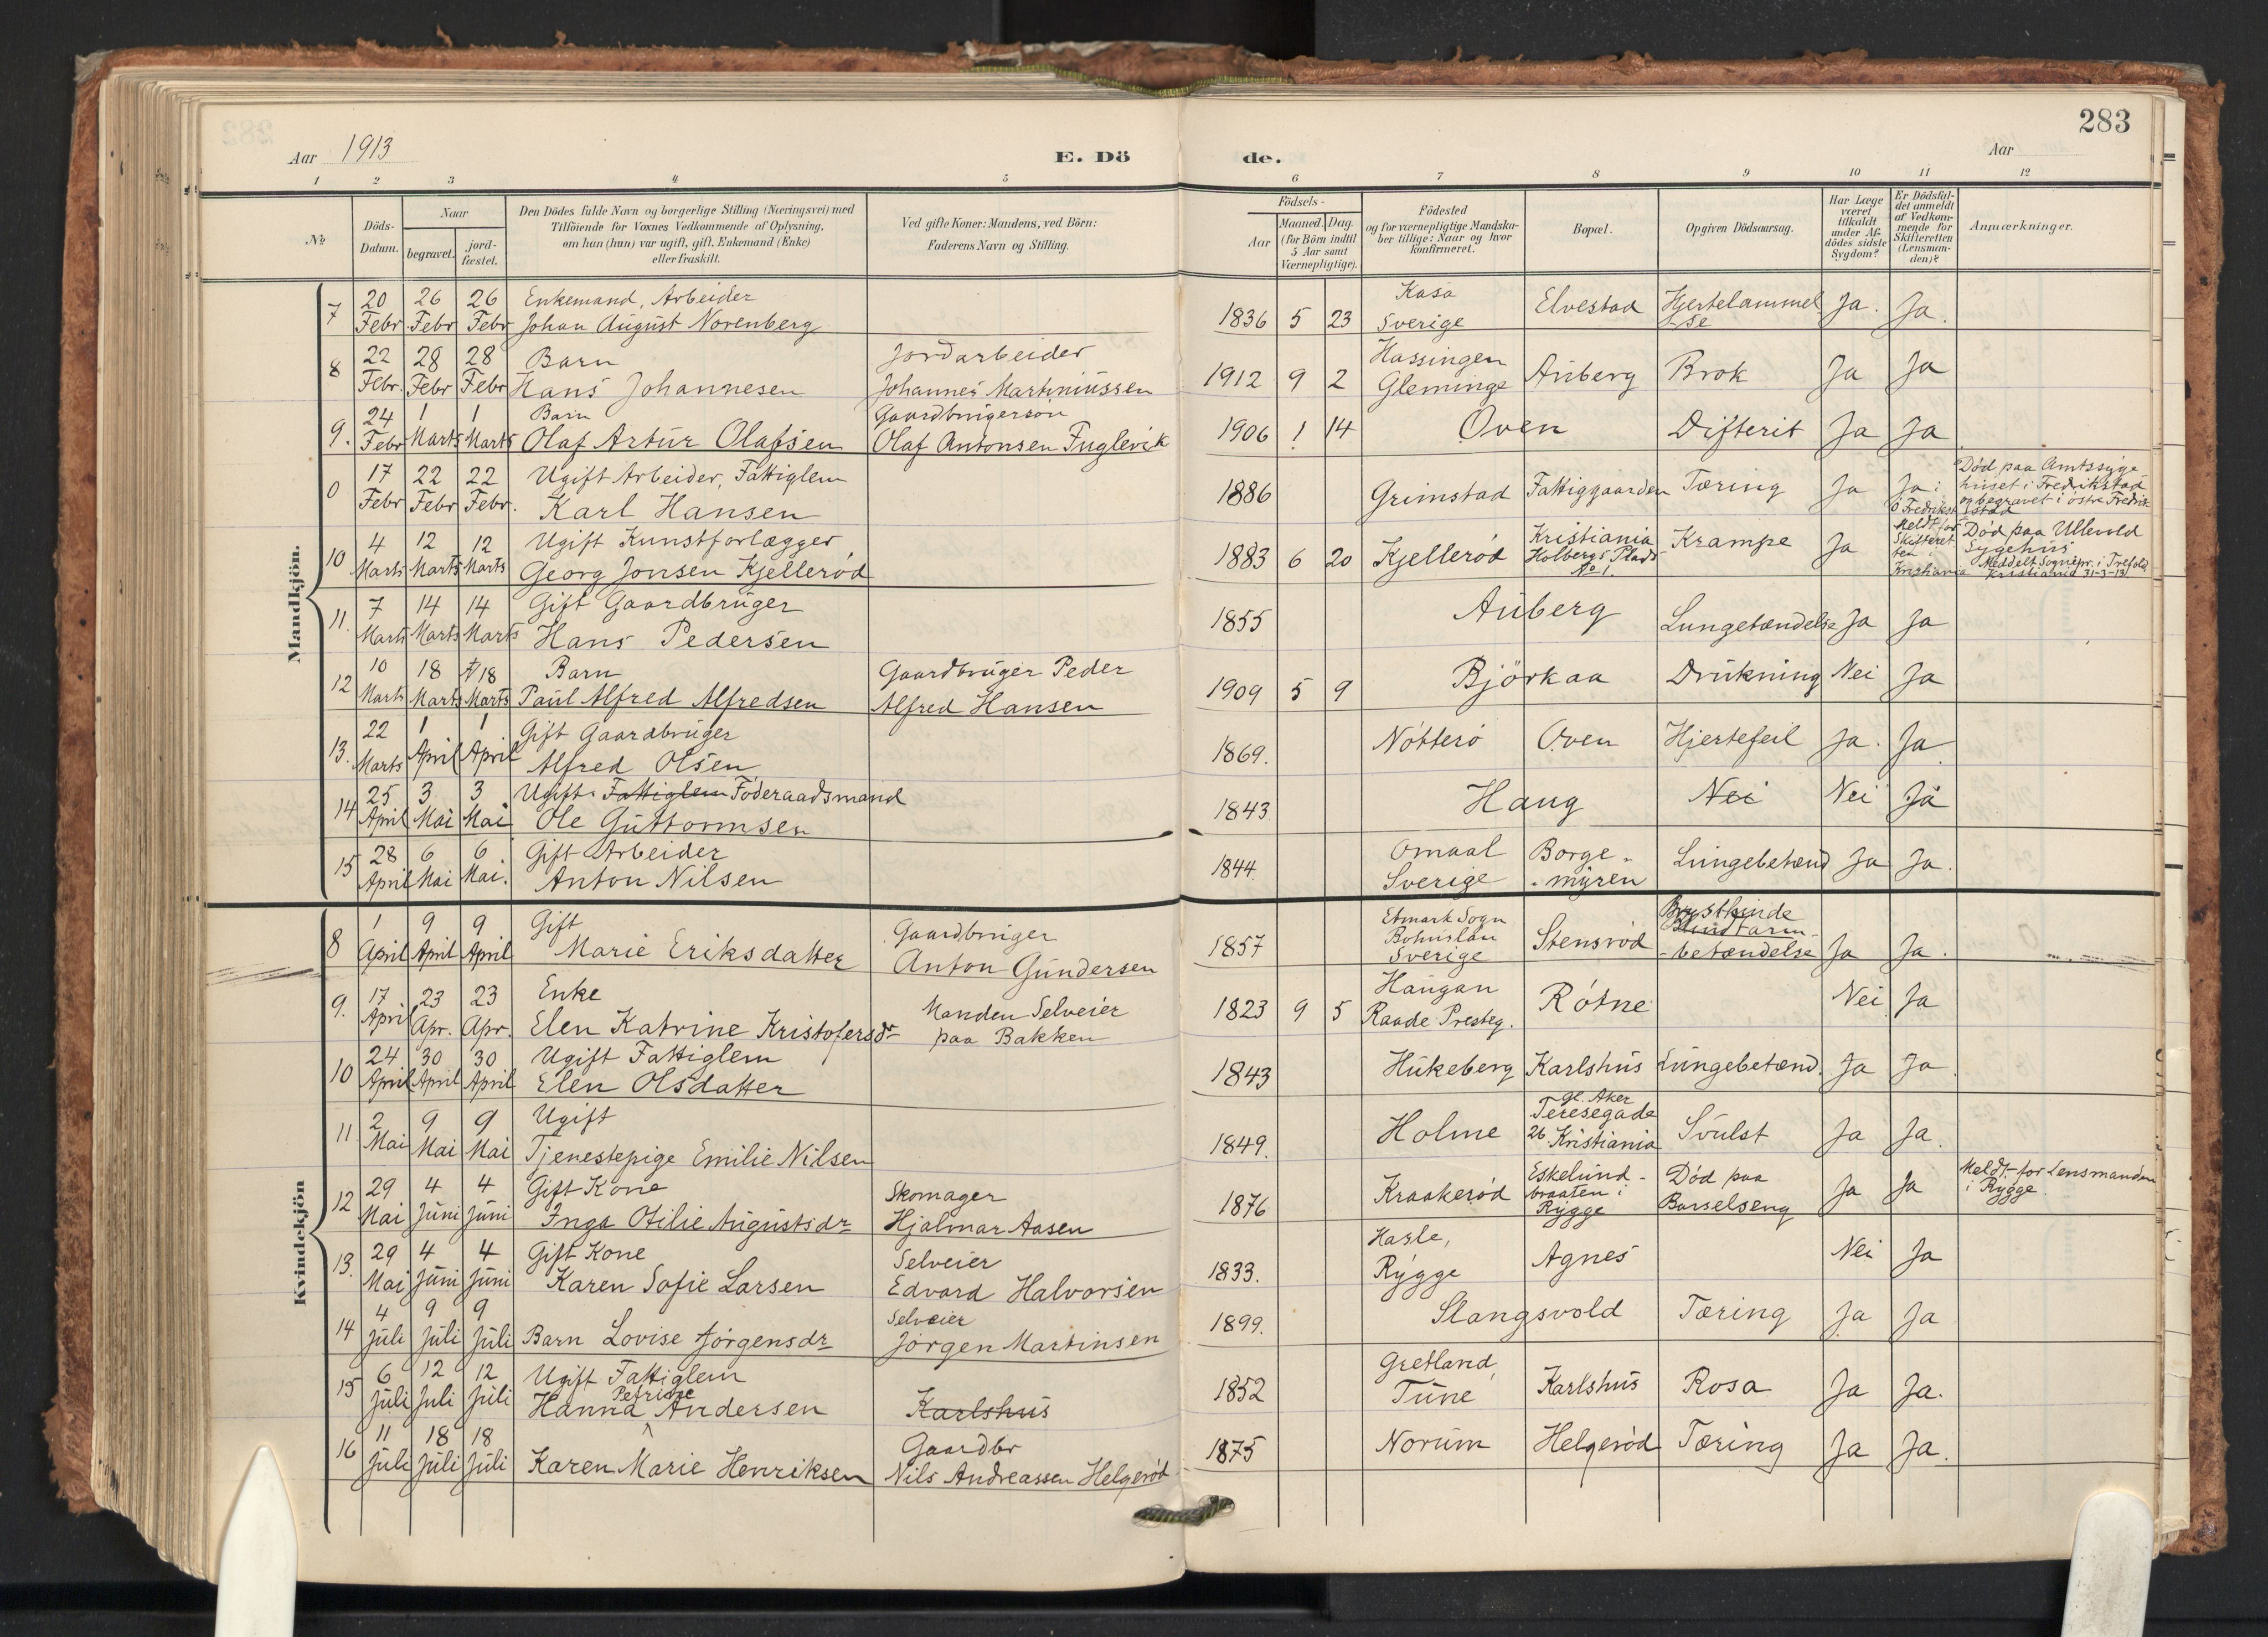 283
Aar 1913
E. Dö de.
Aar
1 2 3 4 5 6 7 8 9 10 11 12
No
Döds-Datum.
Naar
begravet.
jord-fæstet.
Den Dödes fulde Navn og borgerlige Stilling (Næringsvei) med
Tilföiende for Voxnes Vedkommende af Oplysning,
om han (hun) var ugift, gift, Enkemand (Enke)
eller fraskilt.
Ved gifte Koner: Mandens, ved Börn:
Faderens Navn og Stilling.
Födsels-
Aar
Maaned. Dag.
(for Börn indtil
5 Aar samt
Værnepligtige).
Födested
og for værnepligtige Mandska-
ber tillige: Naar og hvor
konfirmeret.
Bopæl.
Opgiven Dödsaarsag.
Har Læge
været
tilkaldt
under Af-
dödes sidste
Sygdom?
Er Dödsfal-
det anmeldt
af Vedkom-
mende for
Skifteretten
(Lensman-
den)?
Anmærkninger.
Mandkjön.
7 20 26 26 Enkemand, Arbeider Kasa Elvestad Hjertelammel Ja. Ja.
Febr Febr Febr Johan August Norenberg 1836 5 23 Sverige se
8 22 28 28 Barn Jordarbeider Hassingen
Febr. Febr Febr Hans Johannesen Johannes Martiniussen 1912 9 2 Gleminge Auberg Brok Ja Ja
24 1 1 Barn Gaardbrugersøn
9. Febr Marts Marts Olaf Artur Olafsen Olaf Antonsen Fuglevik 1906 1 14 Oven Difterit Ja Ja
0 17 22 22 Ugift Arbeider, Fattiglem Død paa Amtssyge-
Febr Febr Febr. Karl Hansen 1886 Grimstad Fattiggaarden Tæring Ja Ja i huset i Fredrikstad
Ø Fredrikst og begravet i østre Fredrik
stad
10 4 12 12 Ugift Kunstforlægger Kristiania Krampe Ja Meldt for Død paa Ullevold
Marts Marts Marts Georg Jonsen Kjellerød 1883 6 20 Kjellerød Holbergs Plads Skifteret Sygehus
No 1. ten i Meddelt Sognepr. i Trefold.
Kristiania Kristiania 31-3-13
11. 7 14 14 Gift Gaardbruger
Marts Marts Marts Hans Pedersen 1855 Auberg Lungetændelse Ja Ja
12 10 18 18 Barn Gaardbruger Peder
Marts Marts Marts Paul Alfred Alfredsen Alfred Hansen 1909 5 9 Björkaa Drukning Nei Ja
13. 22 1 1 Gift Gaardbruger
Marts April April Alfred Olsen 1869. Nötterö Oven Hjertefeil Ja. Ja
14 25 3 3 Ugift Fattiglem Föderaadsmand
April Mai Mai Ole Guttormsen 1843 Haug Nei Nei Ja
15 28 6 6 Gift Arbeider Omaal Borge-
April Mai Mai. Anton Nilsen 1844 Sverige myren Lungebetænd Ja Ja.
Kvindekjön
8 1 9 9 Gift Gaardbruger Etmark Sogn Brysthinde
April April April Marie Eriksdatter Anton Gundersen 1857 Bohuslän Stensrød Blindtarm-
Sverige betændelse Ja Ja.
9. 17 23 23 Enke Manden Selveier Haugan
April Apr. Apr. Elen Katrine Kristofersdr paa Bakken 1823 9 5 Raade Presteg. Røtne Nei Ja
10 24 30 30 Ugift Fattiglem
April April April Elen Olsdatter 1843 Hukeberg Karlshus Lungebetænd. Ja Ja.
11 2 9 9 Ugift gl. Aker
Mai Mai Mai Tjenestepige Emilie Nilsen 1849. Holme Teresegade
26 Kristiania Svulst Ja Ja.
12 29 4 4 Gift Kone Skomager Eskelund- Død paa Meldt for Lensmanden
Mai Juni Juni Inga Otilie Augustsdr Hjalmar Aasen 1876 Kraakerød braaten i Barselseng Ja Ja i Rygge
Rygge
13. 29 4 4 Gift Kone Selveier Hasle,
Mai Juni Juni Karen Sofie Larsen Edvard Halvorsen 1833. Rygge Agnes Nei Ja
14 4 9 9 Selveier
Juli Juli Juli Barn Lovise Jørgensdr Jørgen Martinsen 1899. Slangsvold Tæring Ja Ja
15 6 12 12 Ugift Fattiglem Gretland,
Juli Juli Juli Hanna Petrine Andersen Karlshus 1852 Tune Karlshus Rosa Ja Ja.
16 11 18 18 Gaardbr
Juli Juli Juli Karen Marie Henriksen Nils Andreassen Helgerød 1875 Norum Helgerød Tæring Ja Ja.